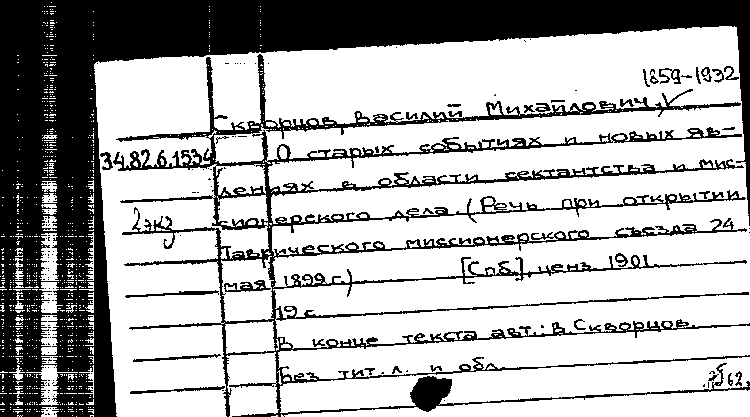 1859-1932
Скворцов, Василий Михайлович,
34.82.6.1534 О старых событиях и новых яв-
лениях в области сектантства и мис-
2 экз сионерского дела. (Речь при открытии
Таврического миссионерского съезда 24
мая 1899 г.) [Спб.], ценз. 1901.
19 с.
В конце текста авт.: В. Скворцов.
Без тит. л. и обл.
62.